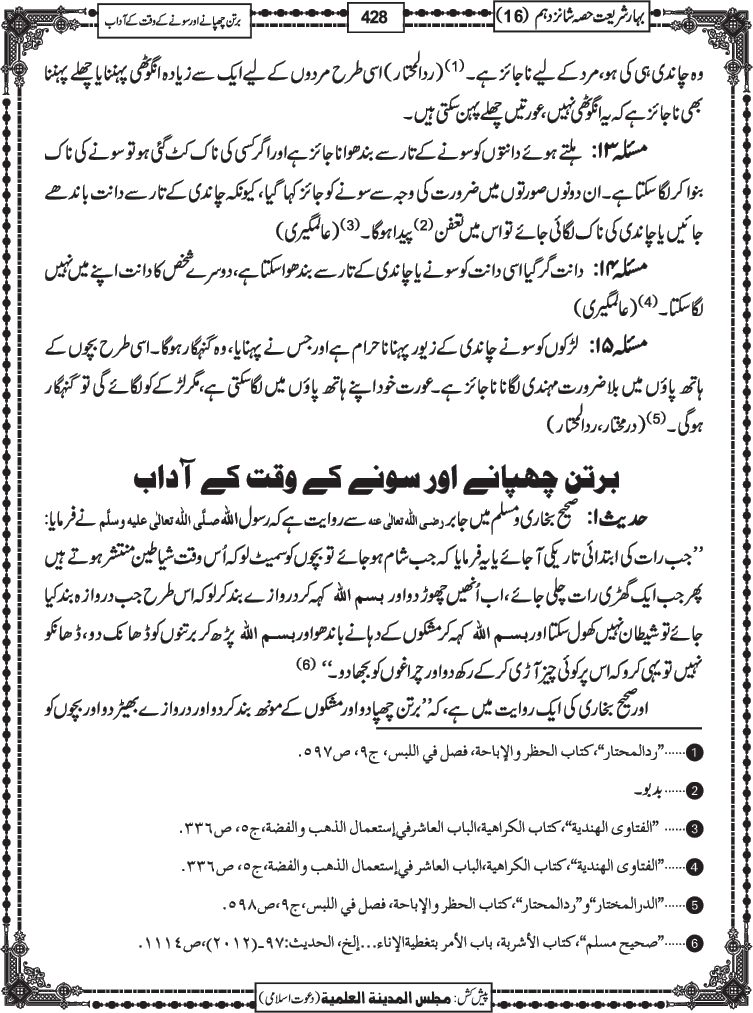 بہارِ شریعت حصہ شانزدہم (16)
428
برتن چھپانے اور سونے کے وقت کے آداب
وہ چاندی ہی کی ہو، مرد کے لیے ناجائز ہے۔ (1) (ردالمحتار) اسی طرح مردوں کے لیے ایک سے زیادہ انگوٹھی پہننا یا چھلے پہننا
بھی ناجائز ہے کہ یہ انگوٹھی نہیں، عورتیں چھلے پہن سکتی ہیں۔
مسئلہ ۱۳: ہلتے ہوئے دانتوں کو سونے کے تار سے بندھوانا جائز ہے اور اگر کسی کی ناک کٹ گئی ہو تو سونے کی ناک
بنوا کر لگا سکتا ہے۔ ان دونوں صورتوں میں ضرورت کی وجہ سے سونے کو جائز کہا گیا، کیونکہ چاندی کے تار سے دانت باندھے
جائیں یا چاندی کی ناک لگائی جائے تو اس میں تعفن (2) پیدا ہوگا۔ (3) (عالمگیری)
مسئلہ ۱۴: دانت گر گیا اسی دانت کو سونے یا چاندی کے تار سے بندھوا سکتا ہے، دوسرے شخص کا دانت اپنے میں نہیں
لگا سکتا۔ (4) (عالمگیری)
مسئلہ ۱۵: لڑکوں کو سونے چاندی کے زیور پہنانا حرام ہے اور جس نے پہنایا، وہ گنہگار ہوگا۔ اسی طرح بچوں کے
ہاتھ پاؤں میں بلا ضرورت مہندی لگانا ناجائز ہے۔ عورت خود اپنے ہاتھ پاؤں میں لگا سکتی ہے، مگر لڑکے کو لگائے گی تو گنہگار
ہوگی۔ (5) (درمختار، ردالمحتار)
برتن چھپانے اور سونے کے وقت کے آداب
حدیث ۱: صحیح بخاری و مسلم میں جابر رضی اللہ تعالٰی عنہ سے روایت ہے کہ رسول اللہ صلَّی اللہ تعالٰی علیہ وسلَّم نے فرمایا:
’’جب رات کی ابتدائی تاریکی آجائے یا یہ فرمایا کہ جب شام ہو جائے تو بچوں کو سمیٹ لو کہ اُس وقت شیاطین منتشر ہوتے ہیں
پھر جب ایک گھڑی رات چلی جائے، اب اُنھیں چھوڑ دو اور بسم اللہ کہہ کر دروازے بند کر لو کہ اس طرح جب دروازہ بند کیا
جائے تو شیطان نہیں کھول سکتا اور بسم اللہ کہہ کر مشکوں کے دہانے باندھو اور بسم اللہ پڑھ کر برتنوں کو ڈھانک دو، ڈھانکو
نہیں تو یہی کرو کہ اس پر کوئی چیز آڑی کر کے رکھ دو اور چراغوں کو بجھا دو۔‘‘ (6)
اور صحیح بخاری کی ایک روایت میں ہے، کہ ’’برتن چھپا دو اور مشکوں کے مونھ بند کر دو اور دروازے بھیڑ دو اور بچوں کو
1 ......"ردالمحتار"، کتاب الحظر والإباحة، فصل في اللبس، ج۹، ص۵۹۷.
2 ...... بدبو۔
3 ...... "الفتاوی الهندية"، کتاب الکراهية، الباب العاشر في إستعمال الذهب والفضة، ج۵، ص۳۳۶.
4 ......"الفتاوی الهندية"، کتاب الکراهية، الباب العاشر في إستعمال الذهب والفضة، ج۵، ص۳۳۶.
5 ......"الدرالمختار" و"ردالمحتار"، کتاب الحظر والإباحة، فصل في اللبس، ج۹، ص۵۹۸.
6 ......"صحیح مسلم"، کتاب الأشربة، باب الأمر بتغطية الإناء...إلخ، الحدیث: ۹۷-(۲۰۱۲)، ص۱۱۱۴.
پیش کش: مجلس المدینة العلمیة (دعوتِ اسلامی)